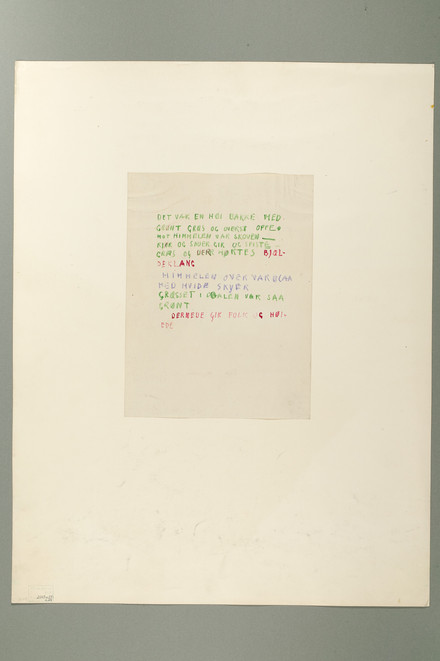 DET VAR EN HØI BAKKE MED
GRØNT GRES OG ØVERST OPPE
MOT HIMMELEN VAR GROVEN —
KJØR OG SAUER GIK OG SPISTE
GRÆS OG DERE HØRTES BJØL-
DEGLANG
HIMMELEN OVER VAR BLAA
MED HVIDE SKYER
GRESSET I DALEN VAR SAA
GRØNT
DERNEDE GIK FOLK OG HØI-
EDE